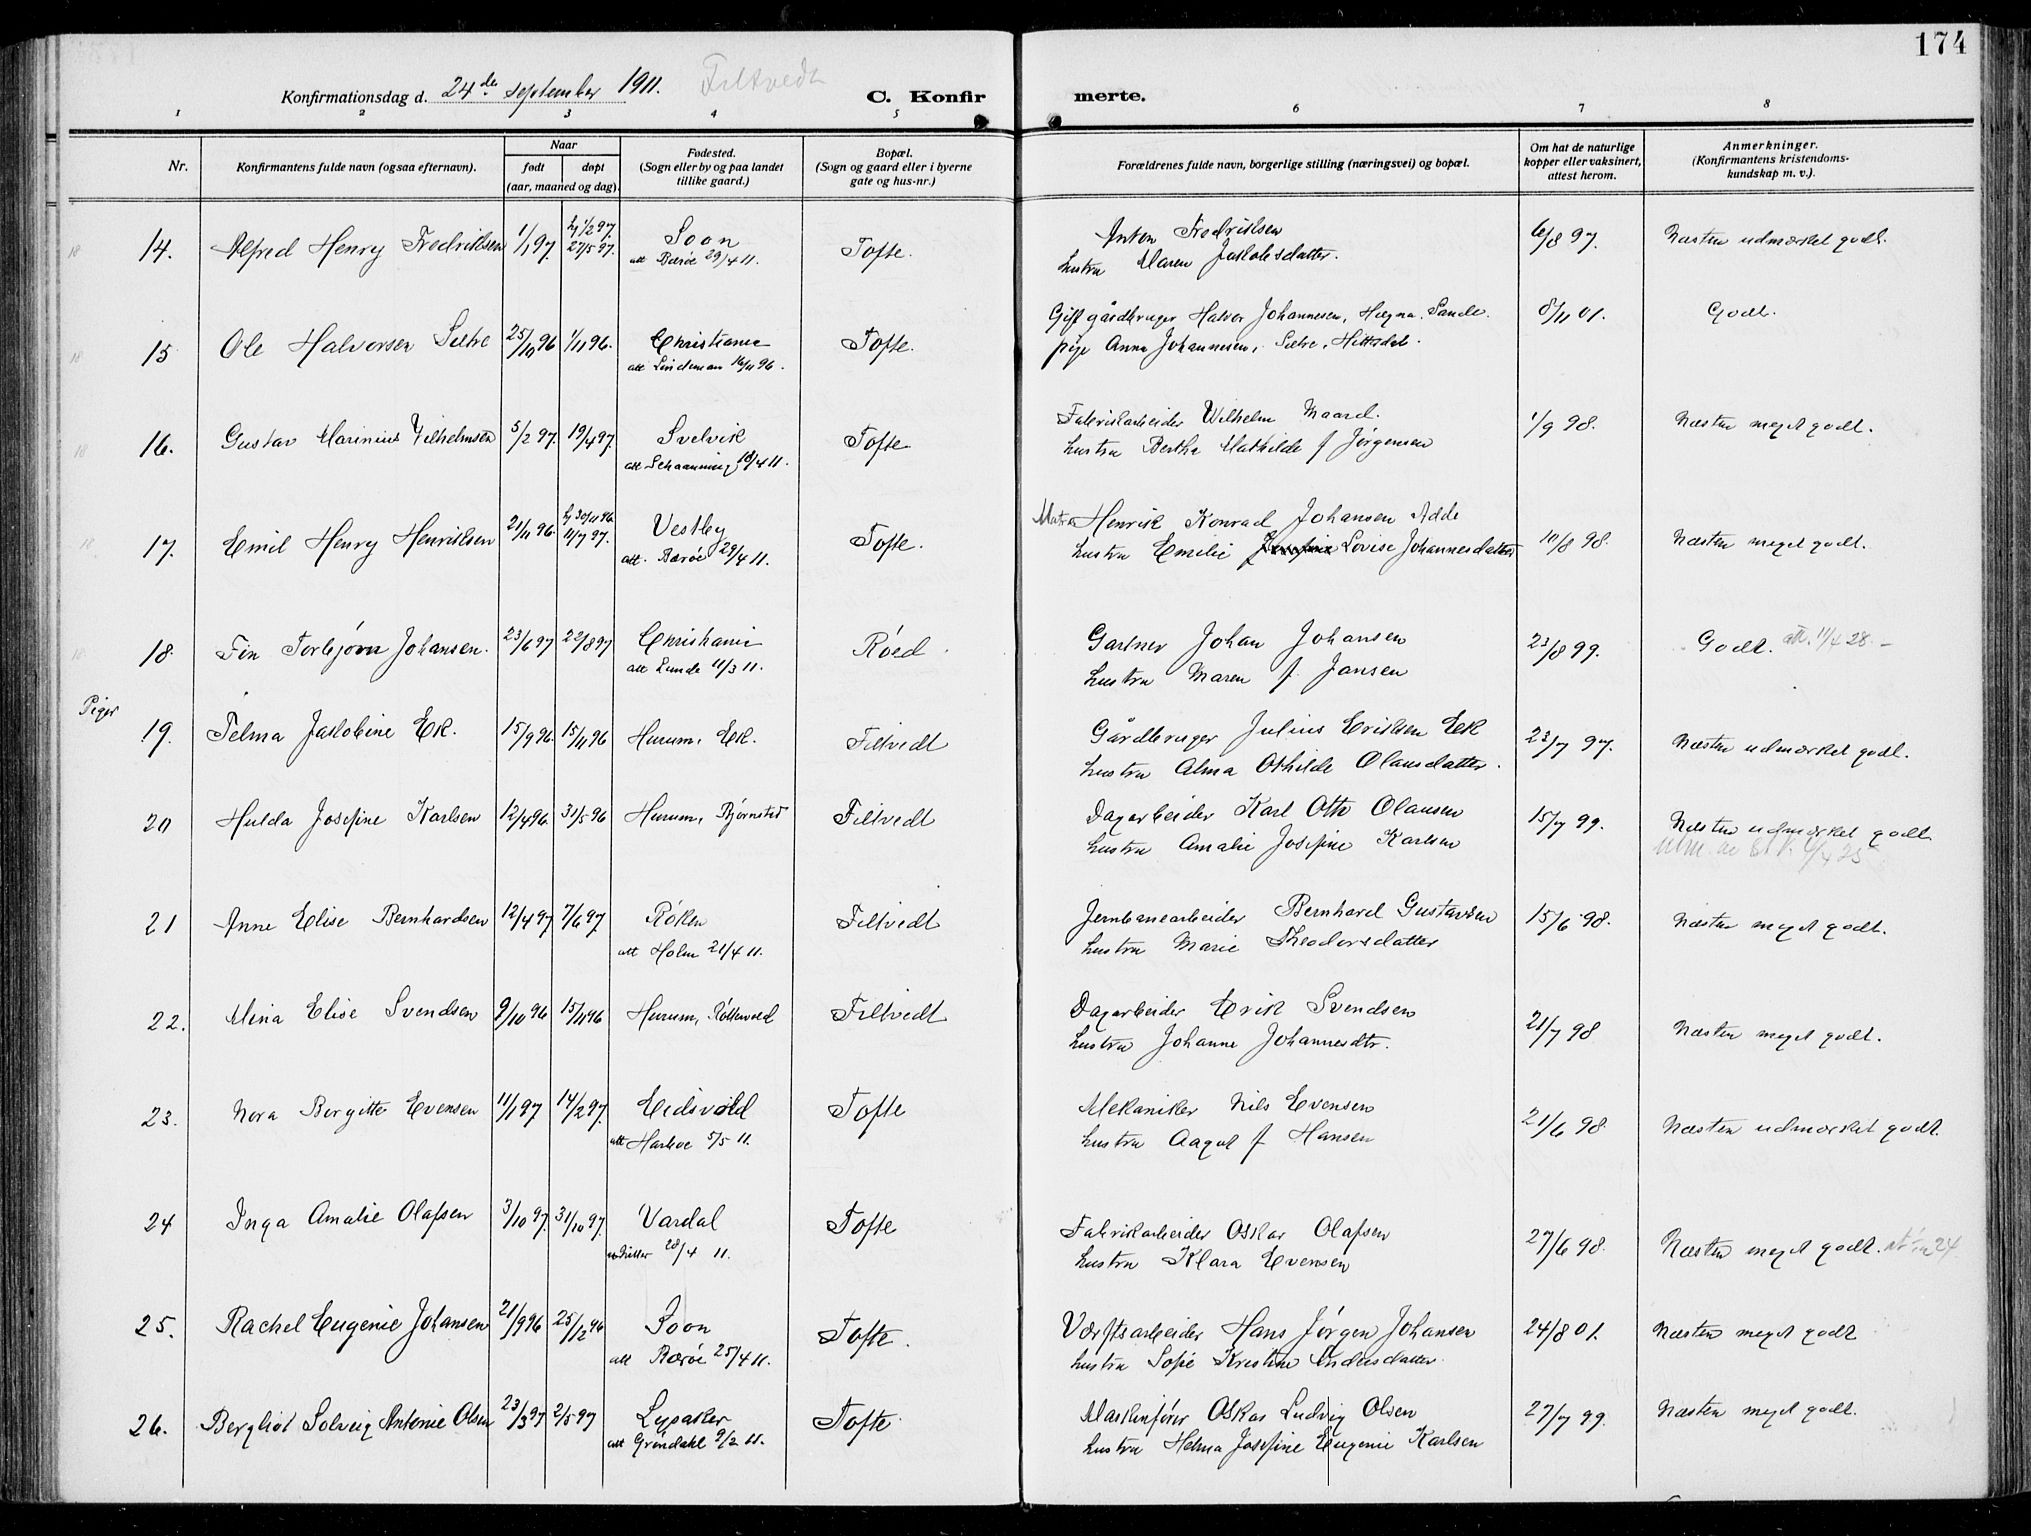 174
Konfirmationsdag d. 24de september 1911. Filtvedt
C. Konfirmerte.
1 2 3 4 5 6 7 8
Nr.
Konfirmantens fulde navn (ogsaa efternavn).
Naar
født
døpt
(aar, maaned og dag).
Fødested.
(Sogn eller by og paa landet
tillike gaard.)
Bopæl.
(Sogn og gaard eller i byerne
gate og hus-nr.)
Forældrenes fulde navn, borgerlige stilling (næringsvei) og bopæl.
Om hat de naturlige
kopper eller vaksinert,
attest herom.
Anmerkninger.
(Konfirmantens kristendoms-
kundskap m. v.).
14. Alfred Henry Fredriksen 1/1 97. hj 1/2 97. 27/5 97. Soon Tofte. Anton Fredriksen 6/8 97. Næsten udmærket godt.
att Bærøe 29/4 11. hustru Maren Jakobsdatter.
15 Ole Halvorsen Sætre 25/10 96 1/11 96. Christiania Tofte. Gift gårdbruger Halvor Johannesen, Hægna, Sande. 8/11 01. Godt.
att Lindeman 16/11 96. pige Anna Johannesen, Sætre, Hittsdal.
16. Gustav Marinius Vilhelmsen 5/2 97. 19/4 97. Svelvik Tofte Fabrikarbeider Wilhelm Maard. 1/9 98. Næsten meget godt.
att Schaanning 18/4 11. hustru Bertha Mathilde f Jørgensen
17. Emil Henry Henriksen 21/11 96. hj 30/11 96. 11/7 97. Vestby Tofte. Matros Henrik Konrad Johansen Adde 10/8 98. Næsten meget godt.
att. Bærøe 29/4 11. hustru Emilie Josefine Lovise Johannesdatter
18. Fin Torbjørn Johansen. 23/6 97 22/8 97 Christiania Røed Gartner Johan Johansen 23/8 99. Godt. att. 11/4 28. –
att Lunde 11/3 11. hustru Maren f. Jansen
Piger
19. Telma Jakobine Ek. 15/9 96. 15/11 96 Hurum, Ek. Filtvedt Gårdbruger Julius Eriksen Eek 23/7 97. Næsten udmærket godt.
hustru Alma Othilde Olausdatter.
20 Hulda Josefine Karlsen 12/4 96. 31/5 96 Hurum, Bjørnsted Filtvedt Dagarbeider Karl Otto Olausen 15/7 99. Næsten udmærket godt
hustru Amalie Josefine Karlsen
21 Anne Elise Bernhardsen 12/4 97 7/6 97 Røken Filtvedt Jernbanearbeider Bernhard Gustavsen 15/6 98. Næsten meget godt.
att Holm 21/4 11. hustru Marie Theodorsdatter
22. Mina Elise Svendsen 9/10 96 15/11 96 Hurum, Filtvedt Dagarbeider Erik Svendsen 21/7 98 Næsten meget godt.
hustru Johanne Johannesdtr.
23. Nora Bergitte Evensen 11/1 97 14/2 97. Eidsvold Tofte Mekaniker Nils Evensen 21/6 98 Næsten udmærket godt.
att 5/5 11. hustru Aagot f Hansen
24 Inga Amalie Olafsen 3/10 97. 31/10 97. Vardal Tofte Fabrikarbeider Oskar Olafsen 27/6 98. Næsten meget godt.
28/4 11. hustru Klara Evensen
25. Rachel Eugenie Johansen 21/9 96 25/12 96 Soon Tofte. Værftsarbeider Hans Jørgen Johansen 24/8 01. Næsten meget godt
att Bærøe 25/4 11. hustru Sofie Kristine Andersdatter.
26. Bergliot Solveig Antonie Olsen 23/3 97 2/5 97 Lysaker Tofte Maskinfører Oskar Ludvig Olsen 27/7 99. Næsten meget godt.
att Grøndahl 9/2 11. hustru Helma Josefine Eugenie Karlsen